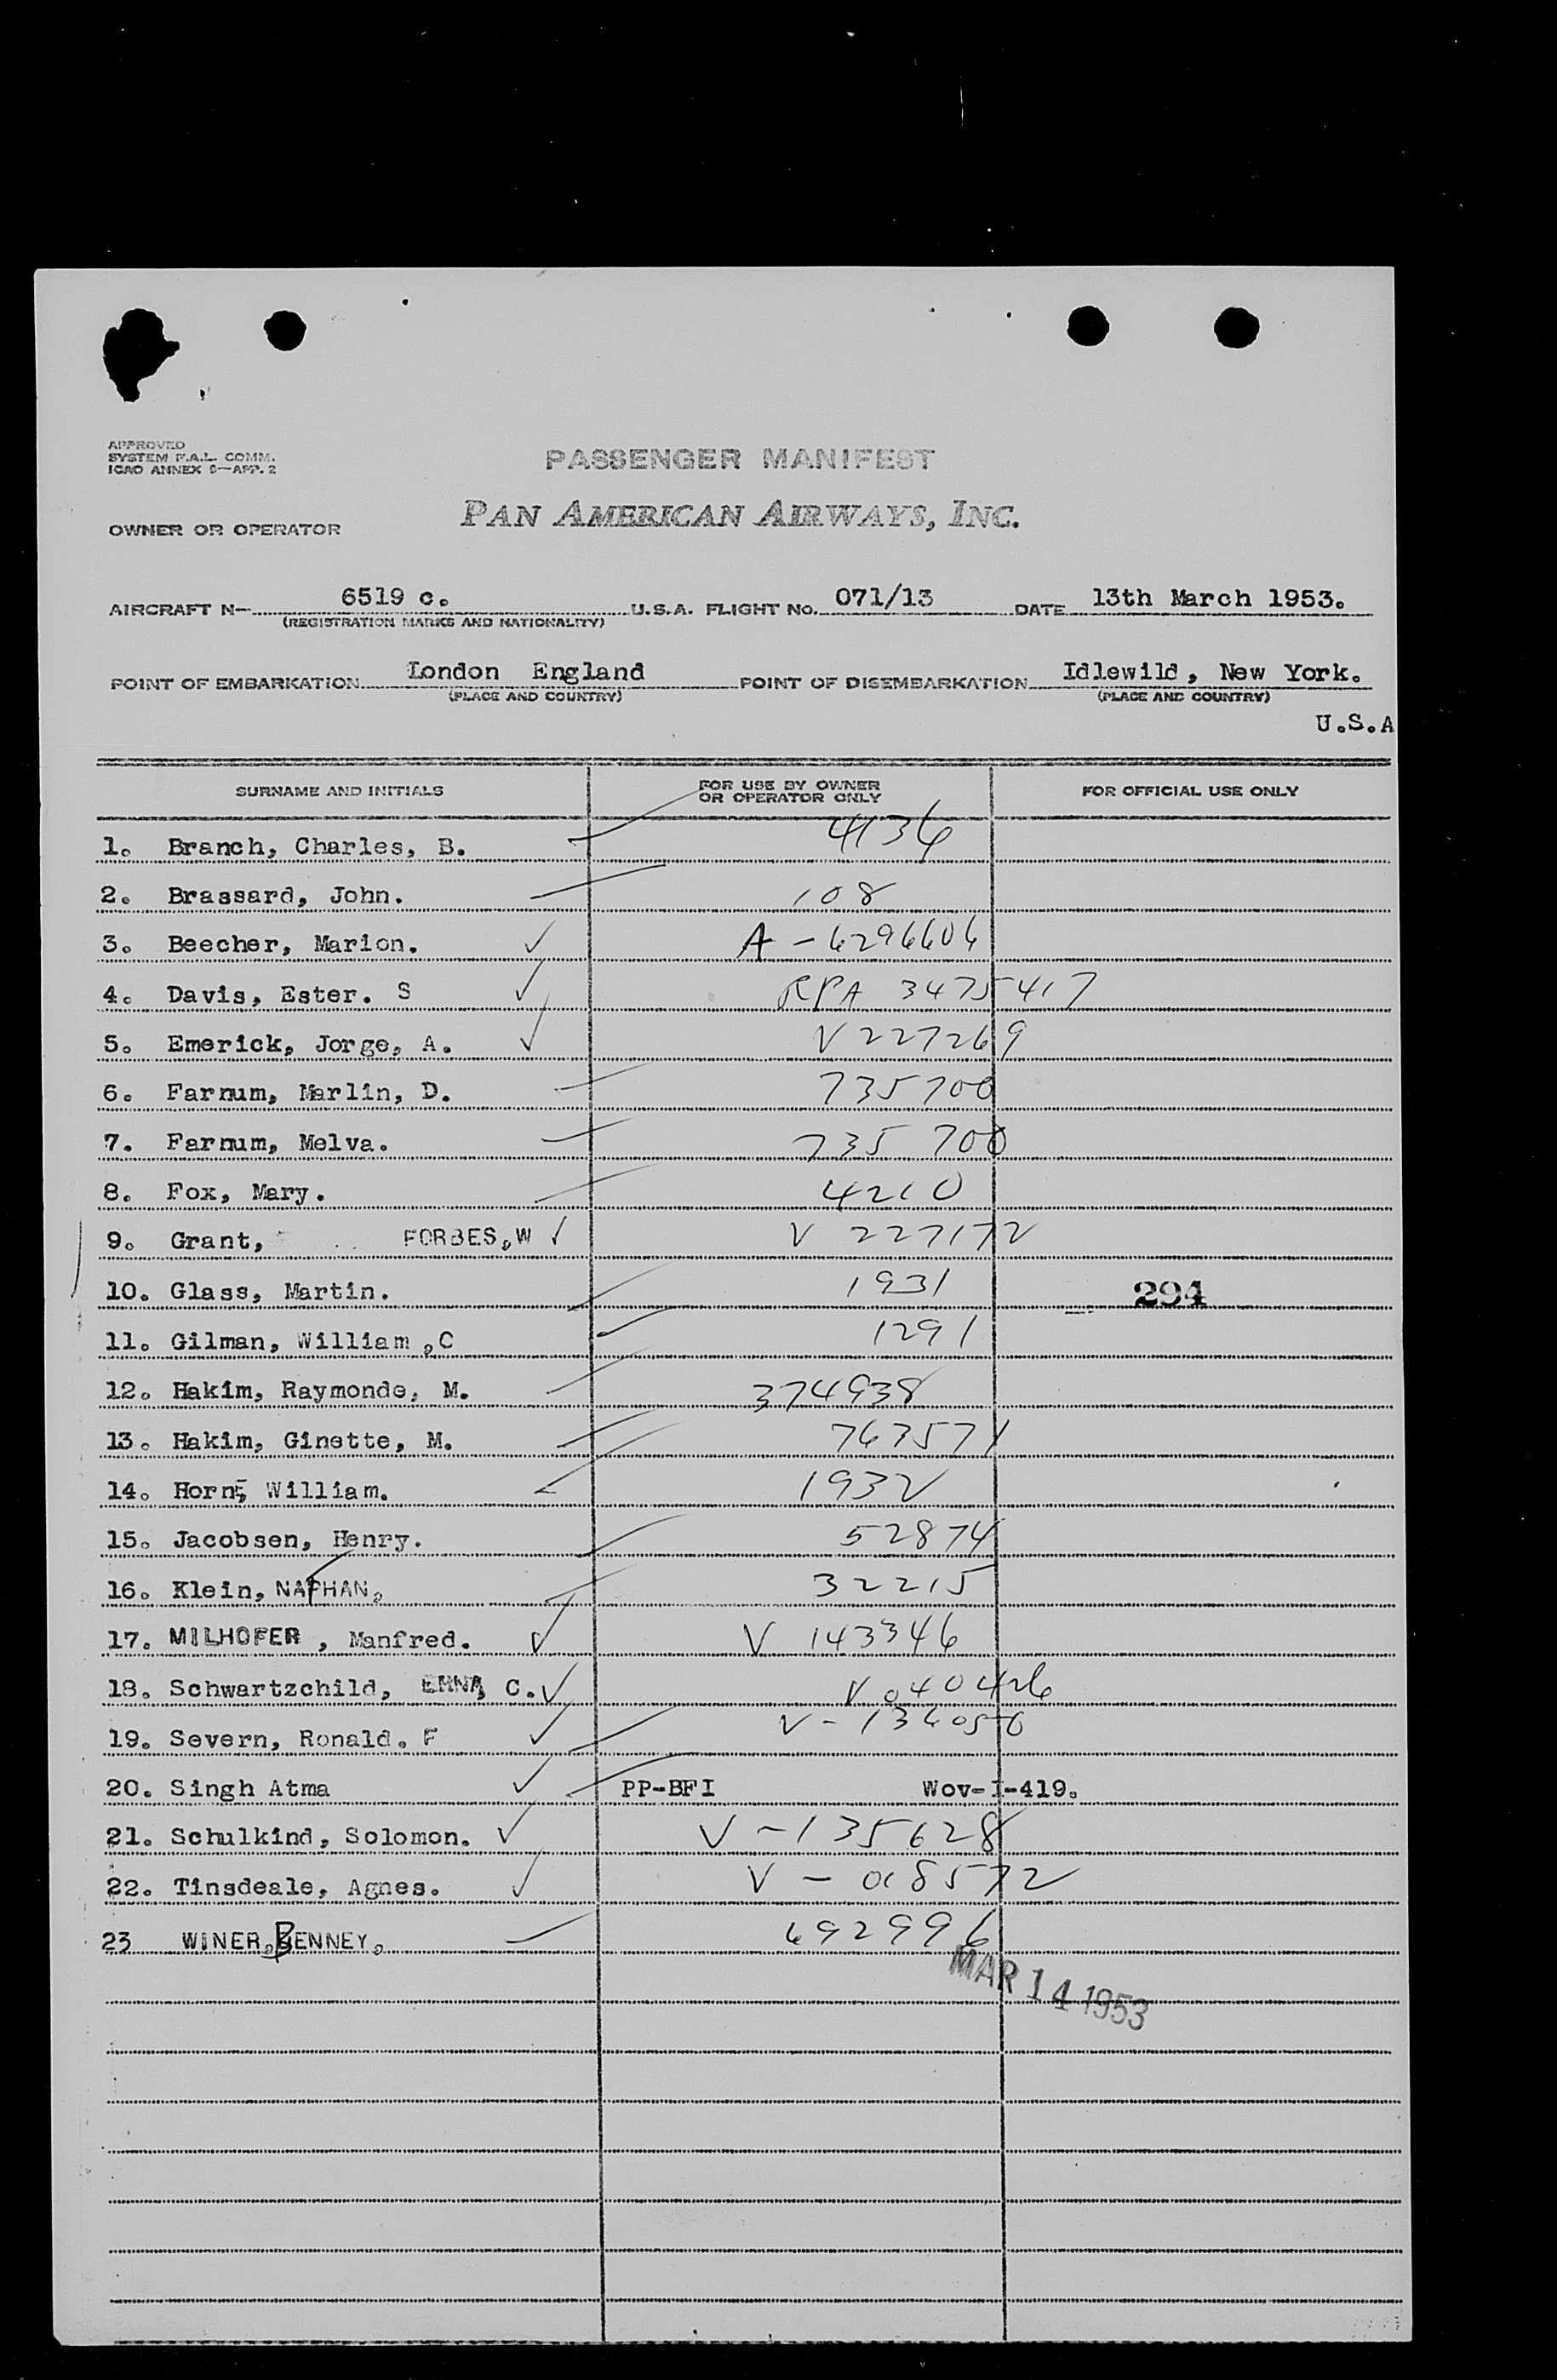 APPROVED
SYSTEM F.A.L. COMM.
ICAO ANNEX 9—APP. 2
PASSENGER MANIFEST
OWNER OR OPERATOR PAN AMERICAN AIRWAYS, INC.
AIRCRAFT N— 6519 c. U.S.A. FLIGHT NO. 071/13 DATE 13th March 1953.
(REGISTRATION MARKS AND NATIONALITY)
POINT OF EMBARKATION London England POINT OF DISEMBARKATION Idlewild, New York.
(PLACE AND COUNTRY) (PLACE AND COUNTRY)
U.S.A
SURNAME AND INITIALS FOR USE BY OWNER OR OPERATOR ONLY FOR OFFICIAL USE ONLY
1. Branch, Charles, B. 4136
2. Brassard, John. 108
3. Beecher, Marion. A-6296606
4. Davis, Ester. S RPA 3475417
5. Emerick, Jorge, A. V 227269
6. Farnum, Marlin, D. 735700
7. Farnum, Melva. 735 700
8. Fox, Mary. 4210
9. Grant, FORBES, W V 227172
10. Glass, Martin. 1931 294
11. Gilman, William, C 1291
12. Hakim, Raymonde, M. 374938
13. Hakim, Ginette, M. 763571
14. Horn, William. 1932
15. Jacobsen, Henry. 52874
16. Klein, NATHAN, 32215
17. MILHOFER, Manfred. V 143346
18. Schwartzchild, EMNA, C. V 040426
19. Severn, Ronald. F V-136050
20. Singh Atma PP-BFI Wov-I-419.
21. Schulkind, Solomon. V-135628
22. Tinsdeale, Agnes. V-018572
23 WINER, BENNEY, 692996
MAR 14 1953